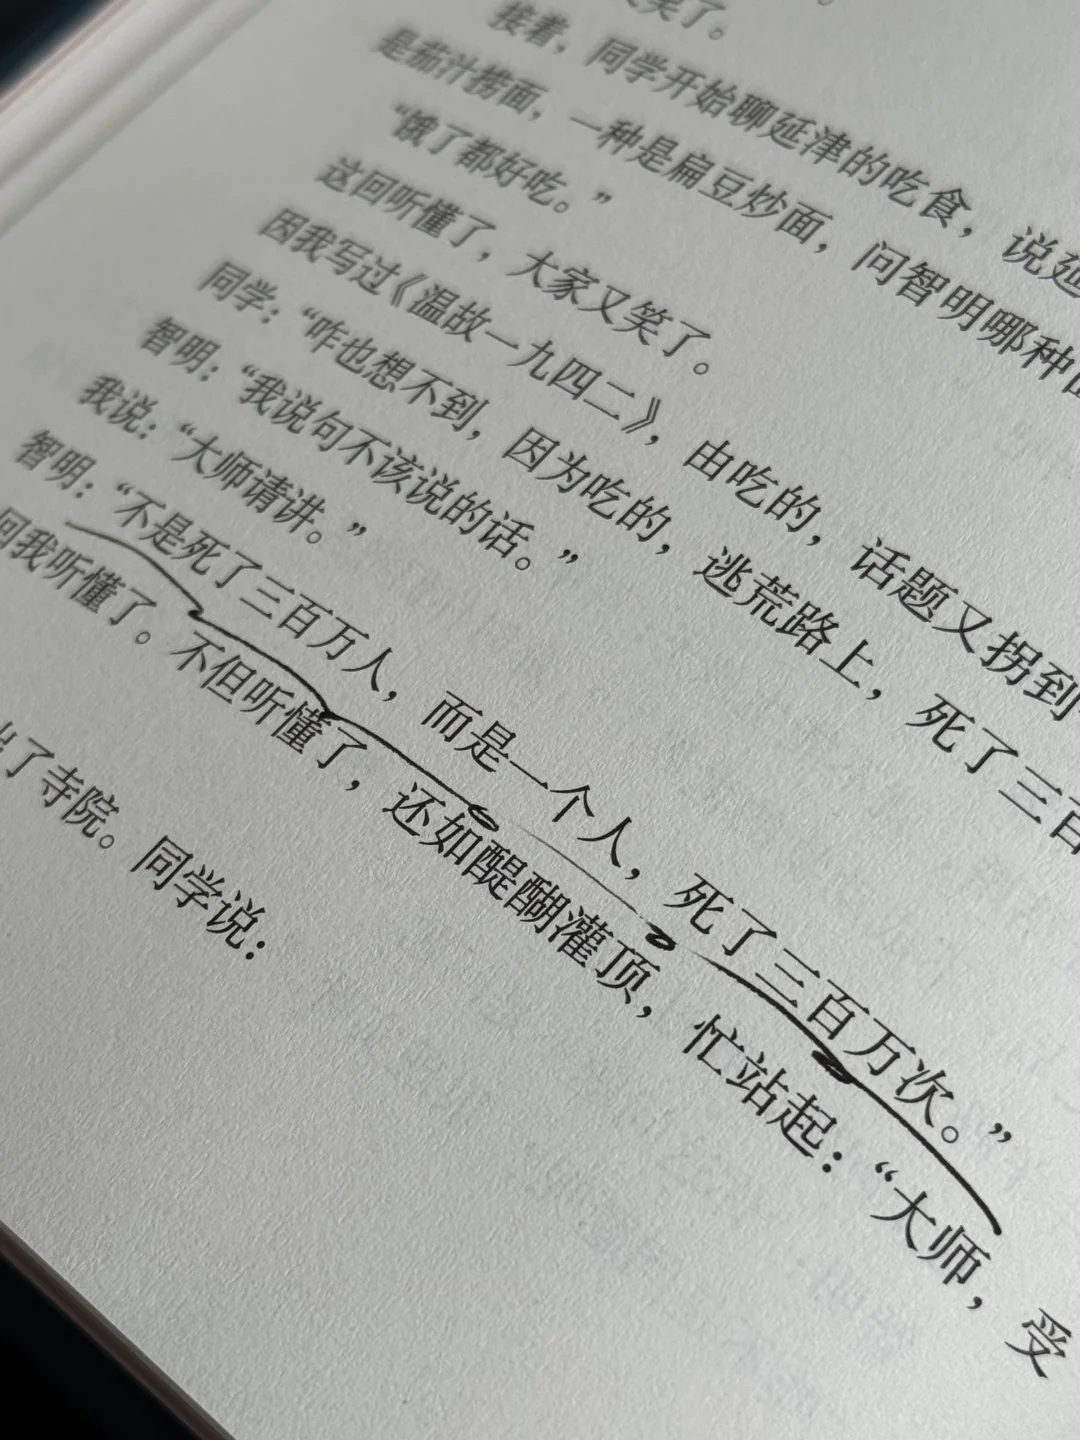 笑了。
接着，同学开始聊延津的吃食，说延
是茄汁捞面，一种是扁豆炒面，问智明哪种
“饿了都好吃。”
这回听懂了，大家又笑了。
因我写过《温故一九四二》，由吃的，话题又拐到
同学：“咋也想不到，因为吃的，逃荒路上，死了三百
智明：“我说句不该说的话。”
我说：“大师请讲。”
智明：“不是死了三百万人，而是一个人，死了三百万次。”
回我听懂了。不但听懂了，还如醍醐灌顶，忙站起：“大师，受
出了寺院。同学说：